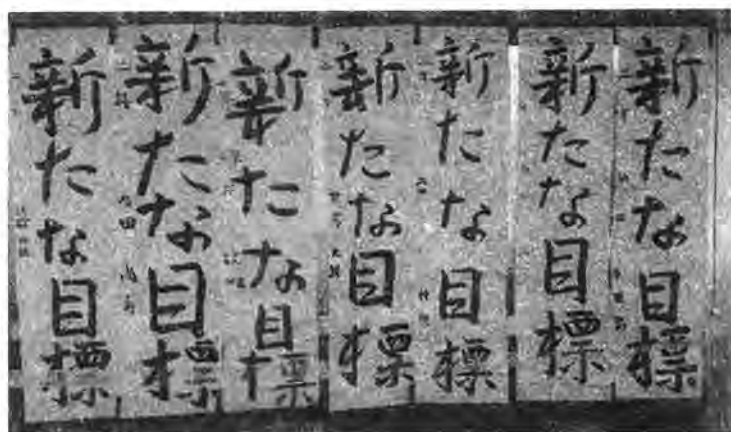 新たな目標
新たな目標
新たな目標
新たな目標
新たな目標
新たな目標
新たな目標